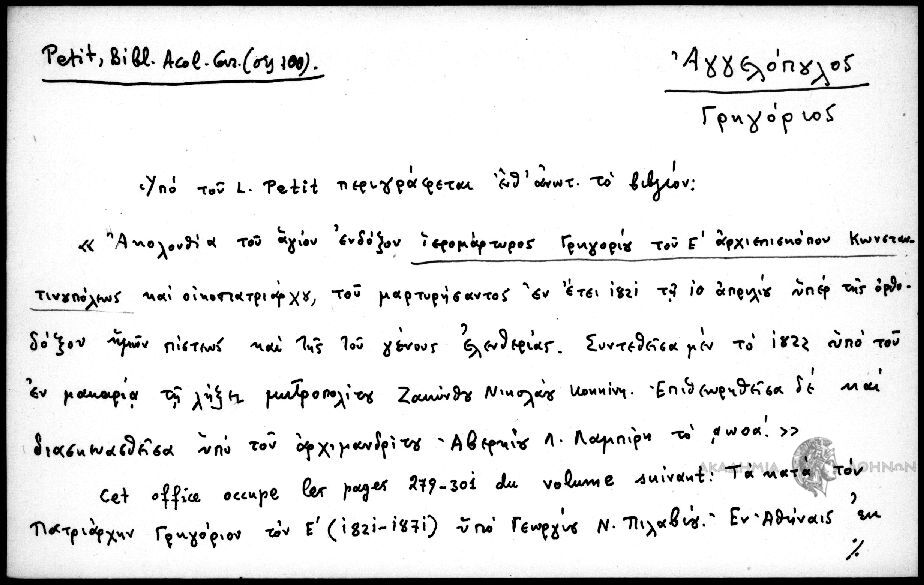 Petit, Bibl. Acol. Gr. (σγ 100).
Ἀγγελόπυλος
Γρηγόριος
Ὑπό τοῦ L. Petit περιγράφεται ἐνθ' ἀνωτ. τό βιβλίον:
« Ἀκολουθία τοῦ ἁγίου ἐνδόξου ἱερομάρτυρος Γρηγορίου τοῦ Ε' ἀρχιεπισκόπου Κωνσταν
τινουπόλεως καί οἰκουπατριάρχου, τοῦ μαρτυρήσαντος ἐν ἔτει 1821 τῇ 10 ἀπριλίου ὑπέρ τῆς ὀρθο-
δόξου ἡμῶν πίστεως καί τῆς τοῦ γένους ἐλευθερίας. Συντεθεῖσα μέν τό 1822 ὑπό τοῦ
ἐν μακαρίᾳ τῇ λήξει μητροπολίτου Ζακύνθου Νικολάου Κοκκίνη. Ἐπιθεωρηθεῖσα δέ καί
διασκευασθεῖσα ὑπό τοῦ ἀρχιμανδρίτου Ἀβερκίου Λ. Λαμπίρη τό ͵αωοα'. »
ΑΚΑΔΗΜΙΑ ΑΘΗΝΩΝ
Cet office occupe les pages 279-301 du volume suivant: Τά κατά τόν
Πατριάρχην Γρηγόριον τόν Ε' (1821-1871) ὑπό Γεωργίου Ν. Πιλαβίου. Ἐν Ἀθήναις ἐκ
%